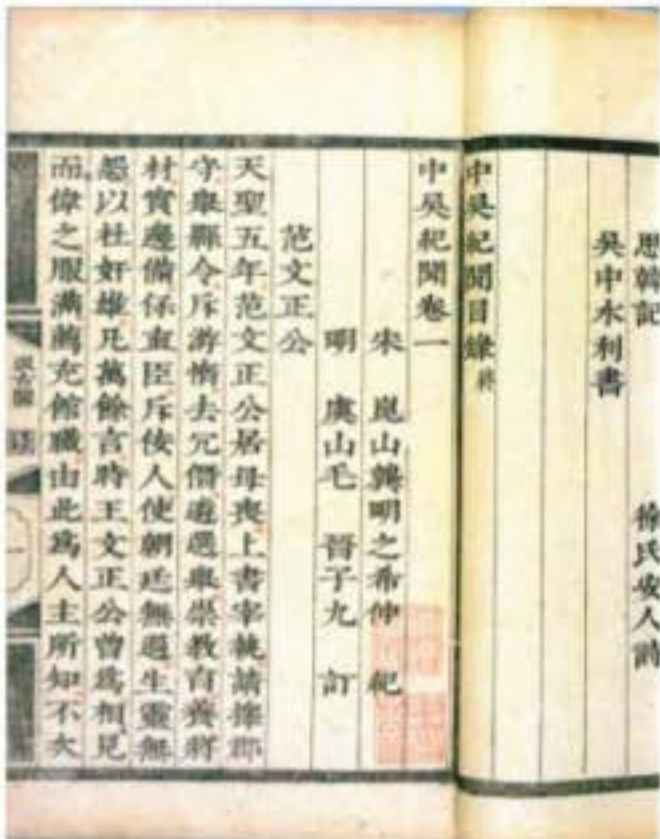 思韓記
徐氏安人詩
吳中水利書
中吳紀聞目錄 終
中吳紀聞卷一
宋 崑山龔明之希仲 紀
明 虞山毛 晉子九 訂
范文正公
天聖五年范文正公居母喪上書宰執請擇郡
守舉縣令斥游惰去冗僭遴選舉崇教育養將
材實邊備保直臣斥佞人使朝廷無過生靈無
怨以杜奸雄凡萬餘言時王文正公曾為相見
而偉之服滿薦充館職由此為人主所知不久
汲古閣
一